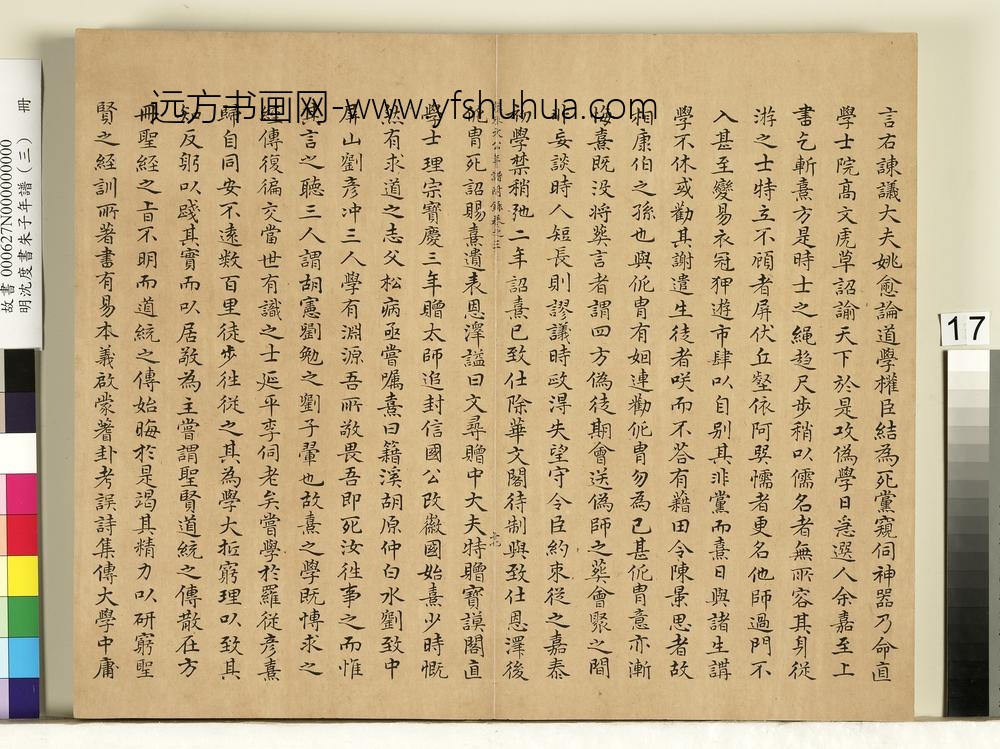 远方书画网-www.yfshuhua.com
言右諫議大夫姚愈論道學權臣結為死黨窺伺神器乃命直
學士院高文虎草詔諭天下於是攻偽學日急選人余嘉至上
書乞斬熹方是時士之繩趍尺步稍以儒名者無所容其身從
游之士特立不顧者屏伏丘壑依阿巽懦者更名他師過門不
入甚至變易衣冠狎遊市肆以自别其非黨而熹日與諸生講
學不休或勸其謝遣生徒者咲而不答有藉田令陳景思者故
相康伯之孫也與侂胄有姻連勸侂胄勿為已甚侂胄意亦漸
悔熹既没將葬言者謂四方偽徒期會送偽師之葬會聚之間
非妄談時人短長則謬議時政得失望守令臣約束從之嘉泰
初學禁稍弛二年詔熹已致仕除華文閣待制與致仕恩澤後
朱文公年譜附錄卷之三
侂胄死詔賜熹遺表恩澤諡曰文尋贈中大夫特贈寶謨閣直
學士理宗寶慶三年贈太師追封信國公改徽國始熹少時慨
然有求道之志父松病亟嘗囑熹曰籍溪胡原仲白水劉致中
屏山劉彦冲三人學有淵源吾所敬畏吾即死汝往事之而惟
其言之聽三人謂胡憲劉勉之劉子翬也故熹之學既博求之
經傳復徧交當世有識之士延平李侗老矣嘗學於羅從彦熹
歸自同安不遠數百里徒步往從之其為學大抵窮理以致其
知反躬以踐其實而以居敬為主嘗謂聖賢道統之傳散在方
冊聖經之旨不明而道統之傳始晦於是竭其精力以研窮聖
賢之經訓所著書有易本義啟蒙蓍卦考誤詩集傳大學中庸
故書 000627N000000000
明沈度書朱子年譜(三) 冊
17